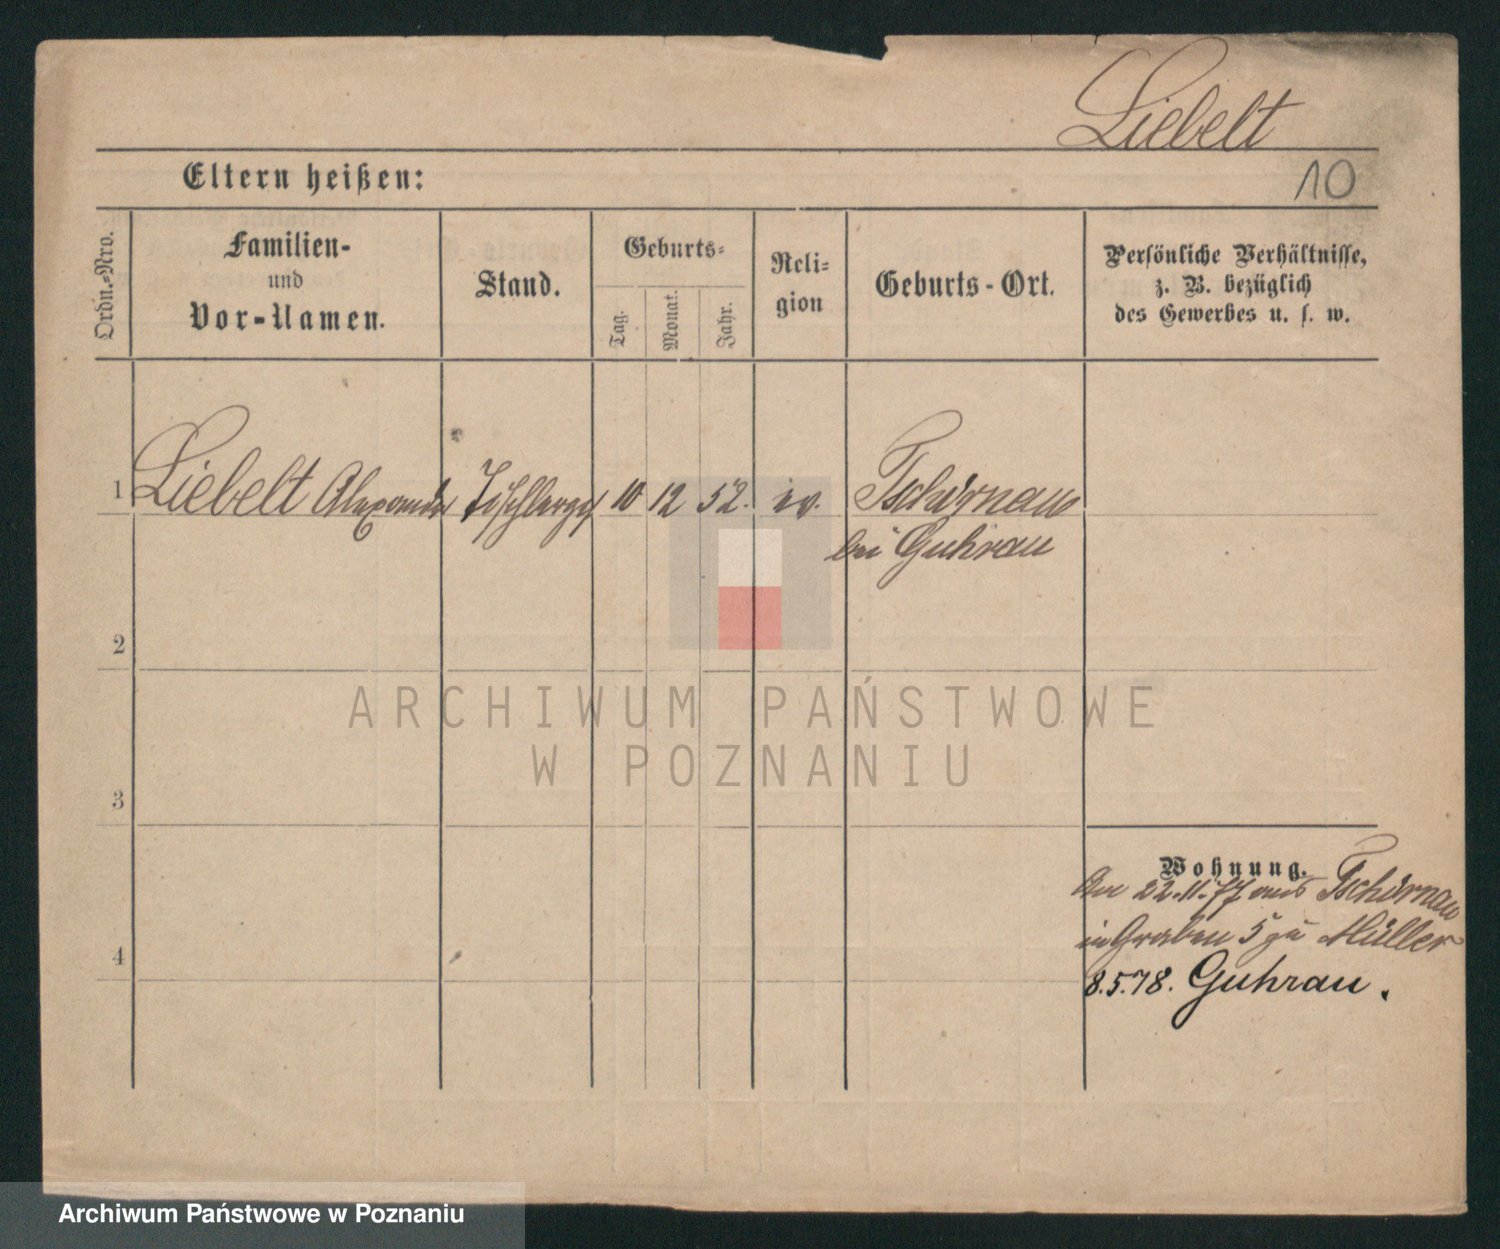 Liebelt
Eltern heißen:
10
Ordn.-Nro.
Familien-
und
Vor-Namen.
Stand.
Geburts-
Tag.
Monat.
Jahr.
Reli-
gion
Geburts-Ort.
Persönliche Verhältnisse,
z. B. bezüglich
des Gewerbes u. s. w.
1 Liebelt Alexander Tischlerges 10 12 52. ev. Tschirnau
bei Guhrau
2
3
4
Wohnung.
22.11.77 aus Tschirnau
in Graben 5 zu Müller
8.5.78. Guhrau.
ARCHIWUM PAŃSTWOWE
W POZNANIU
Archiwum Państwowe w Poznaniu